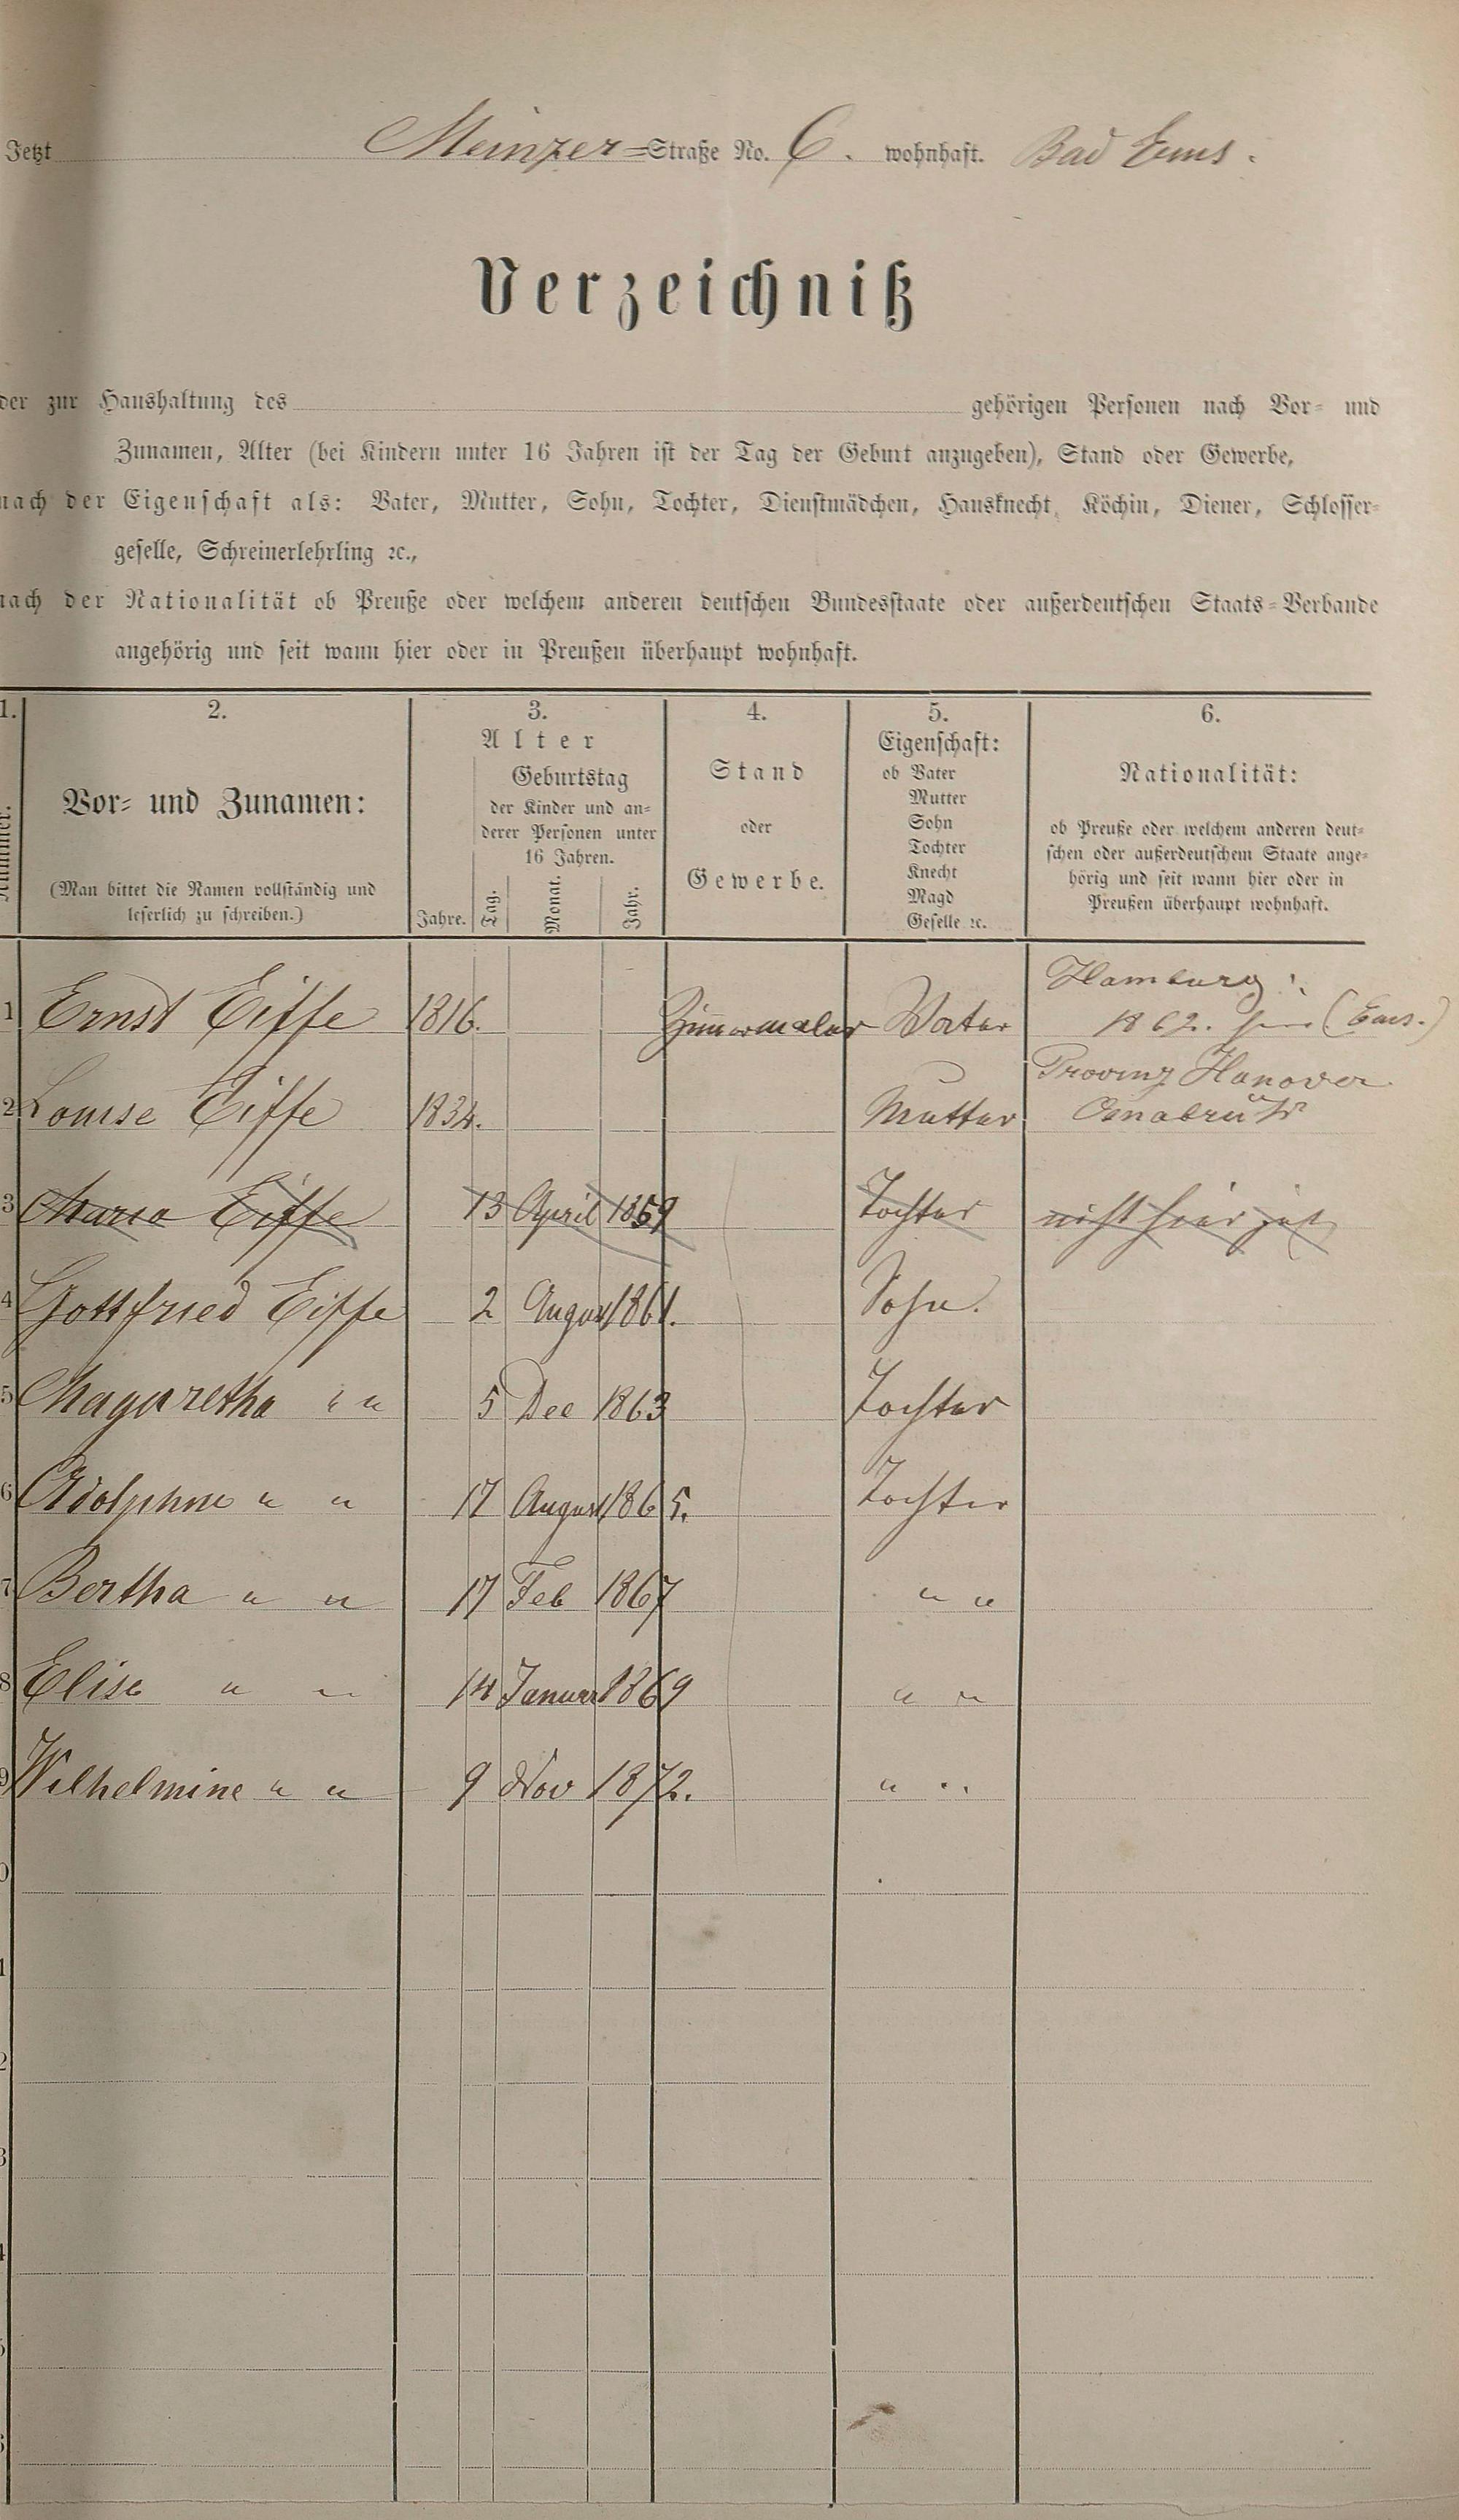 Jetzt Mainzer=Straße No. 6. wohnhaft. Bad Ems.
Verzeichniß
der zur Haushaltung des gehörigen Personen nach Vor- und
Zunamen, Alter (bei Kindern unter 16 Jahren ist der Tag der Geburt anzugeben), Stand oder Gewerbe,
nach der Eigenschaft als: Vater, Mutter, Sohn, Tochter, Dienstmädchen, Hausknecht, Köchin, Diener, Schlosser-
geselle, Schreinerlehrling ꝛc.,
nach der Nationalität ob Preuße oder welchem anderen deutschen Bundesstaate oder außerdeutschen Staats-Verbande
angehörig und seit wann hier oder in Preußen überhaupt wohnhaft.
1. 2. 3. 4. 5. 6.
Nummer.
Vor- und Zunamen:
(Man bittet die Namen vollständig und
leserlich zu schreiben.)
Alter
Geburtstag
der Kinder und an-
derer Personen unter
16 Jahren.
Jahre. Tag. Monat. Jahr.
Stand
oder
Gewerbe.
Eigenschaft:
ob Vater
Mutter
Sohn
Tochter
Knecht
Magd
Geselle ꝛc.
Nationalität:
ob Preuße oder welchem anderen deut-
schen oder außerdeutschem Staate ange-
hörig und seit wann hier oder in
Preußen überhaupt wohnhaft.
Hamburg
1 Ernst Eiffe 1816. Zimermaler Vater 1862. (Ems.)
Provinz Hanover
2 Louise Eiffe 1834. Mutter Osnabrük
3 Maria Eiffe 13 April 1859 Tochter nicht hier
4 Gottfried Eiffe 2 August 1861. Sohn.
5 Magaretha " " 5 Dec 1863 Tochter
6 Adolphine " " 17 August 1865. Tochter
7 Bertha " " 17 Feb 1867 " "
8 Elise " " 14 Januar 1869 " "
9 Wilhelmine " " 9 Nov 1872. " "
0
1
2
3
4
5
6